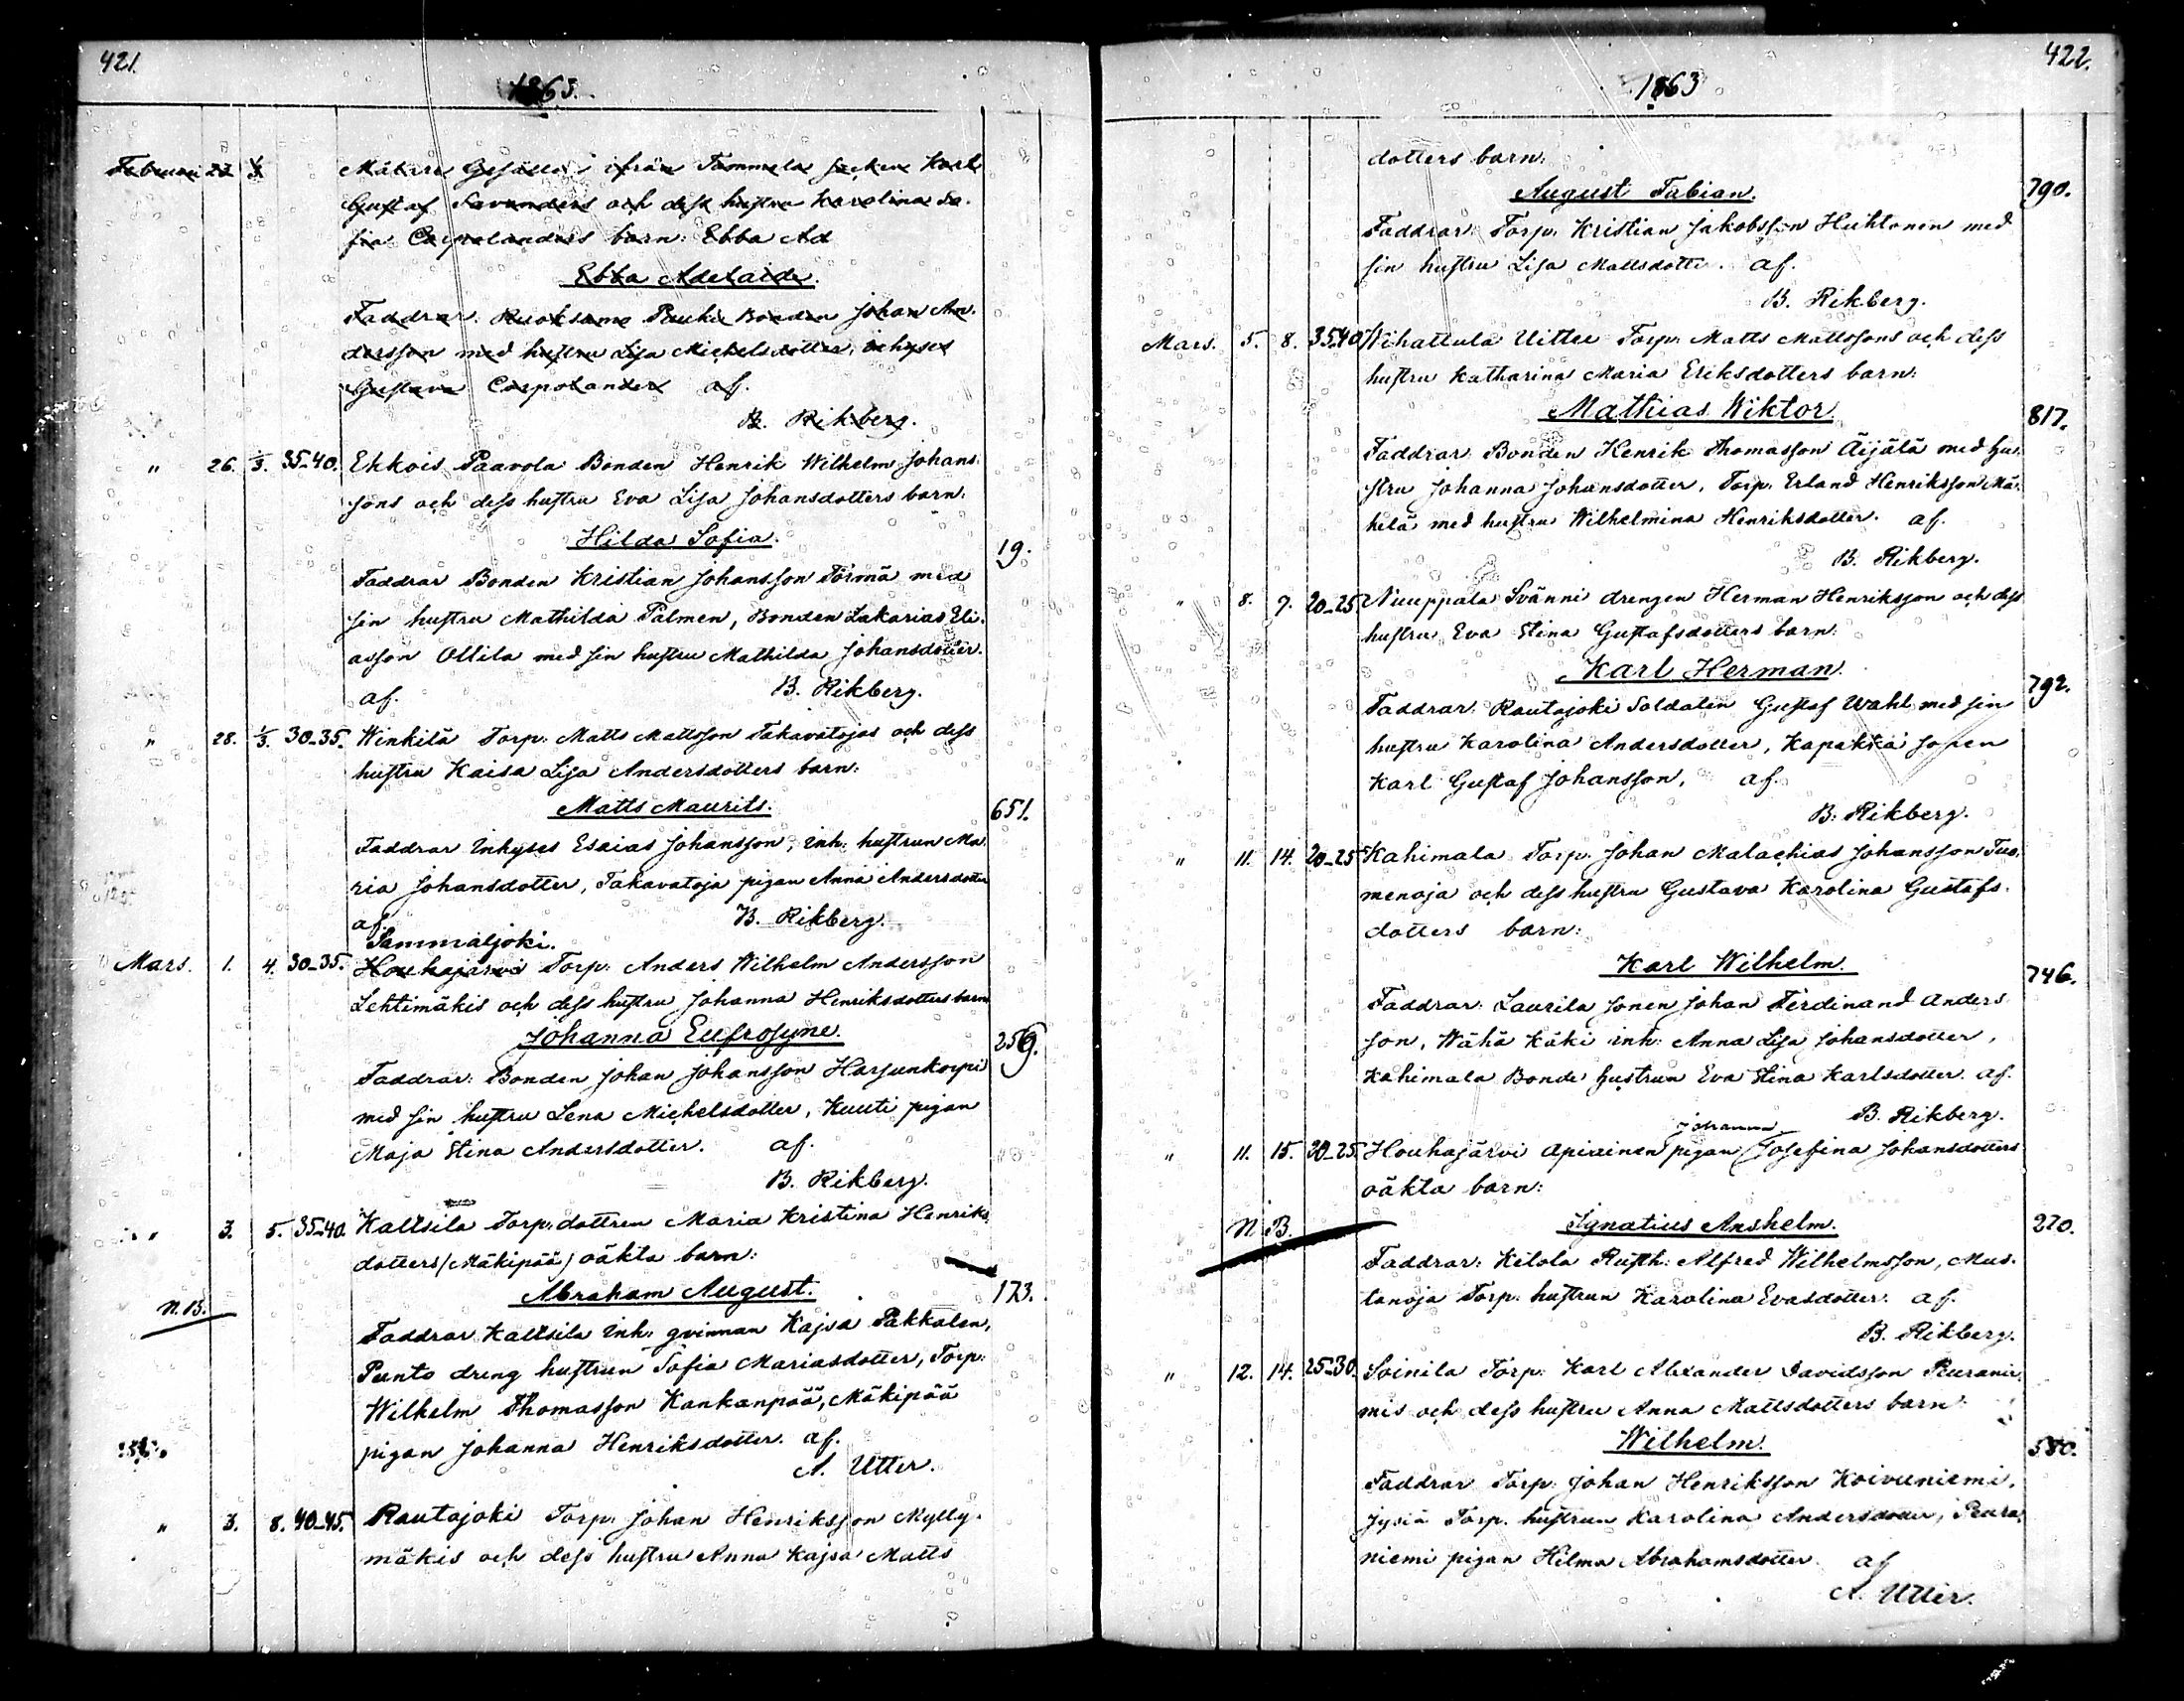 421.
1863.
Februari 22 1/3 Målare Gesällen ifrån Tammela socken Karl
Gustaf Savanders och dess hustru Karolina So-
fia Carpelanders barn: Ebba Ad
Ebba Adelaide.
Faddrar: Ruoksamo Pauhu Bonden Johan An-
dersson med hustru Lisa Michelsdotter, inhyses
Gustava Carpolander af.
B. Rikberg.
" 26. 1/3. 35-40. Ekkois Paavola Bonden Henrik Wilhelm Johans-
sons och dess hustru Eva Lisa Johansdotters barn:
Hilda Sofia. 19.
Faddrar Bonden Kristian Johansson Törmä med
sin hustru Mathilda Palmen, Bonden Sakarias Eli-
asson Ollila med sin hustru Mathilda Johansdotter.
af. B. Rikberg.
" 28. 1/3. 30-35. Winkilä Torp: Matts Mattsson Takavatojas och dess
hustru Kaisa Lisa Andersdotters barn:
Matts Maurits. 651.
Faddrar Inhyses Esaias Johansson, inh: hustrun Ma-
ria Johansdotter, Takavatoja pigan Anna Andersdotter
af. B. Rikberg.
Sammaljoki.
Mars. 1. 4. 30-35. Houhajärvi Torp: Anders Wilhelm Andersson
Lehtimäkis och dess hustru Johanna Henriksdotters barn
Johanna Eufrosyne. 259.
Faddrar: Bonden Johan Johansson Harjunkorpi
med sin hustru Lena Michelsdotter, Kuuti pigan
Maja Stina Andersdotter. af.
B. Rikberg.
" 3. 5. 35-40. Kaltsila Torp: dottren Maria Kristina Henriks-
dotters (Mäkipää) oäkta barn:
Abraham August. 173.
N.B.
Faddrar Kaltsila Inh: qvinnan Kajsa Pakkalen,
Punto dreng hustrun Sofia Mariasdotter, Torp:
Wilhelm Thomasson Kankanpää, Mäkipää
pigan Johanna Henriksdotter. af.
A. Utter.
" 3. 8. 40-45. Rautajoki Torp: Johan Henriksson Mylly-
mäkis och dess hustru Anna Kajsa Matts
422.
1863
dotters barn:
August Fabian. 790.
Faddrar: Torp: Kristian Jakobsson Huhtanen med
sin hustru Lisa Mattsdotter. af.
B. Rikberg.
Mars. 5. 8. 35-40 Wihattula Uittu Torp: Matts Mattssons och dess
hustru Katharina Maria Eriksdotters barn:
Mathias Wiktor. 817.
Faddrar: Bonden Henrik Thomasson Äijälä med hu-
stru Johanna Johansdotter, Torp: Erland Henriksson Mä-
kilä med hustru Wilhelmina Henriksdotter. af.
B. Rikberg.
" 8. 9. 20-25. Nuuppala Svänni drengen Herman Henriksson och dess
hustru Eva Stina Gustafsdotters barn:
Karl Herman. 792.
Faddrar: Rautajoki Soldaten Gustaf Wahl med sin
hustru Karolina Andersdotter, Kapakka sonen
Karl Gustaf Johansson, af.
B. Rikberg.
" 11. 14. 20-25 Kahimala Torp: Johan Malachias Johansson Tuo-
menoja och dess hustru Gustava Karolina Gustafs-
dotters barn:
Karl Wilhelm. 746.
Faddrar: Laurila sonen Johan Ferdinand Anders-
son, Wähä Käki inh: Anna Lisa Johansdotter,
Kahimala Bonde hustrun Eva Stina Karlsdotter. af.
B. Rikberg.
Johanna
" 11. 15. 20-25. Houhajärvi Apiainen pigan Josefina Johansdotters
oäkta barn:
N.B. Ignatius Anshelm. 270.
Faddrar: Kilola Rusth: Alfred Wilhelmsson, Mus-
tanoja Torp: hustrun Karolina Evasdotter. af.
B. Rikberg.
" 12. 14. 25-30. Soinila Torp: Karl Alexander Davidsson Peuranie-
mis och dess hustru Anna Mattsdotters barn:
Wilhelm. 580.
Faddrar Torp: Johan Henriksson Koivuniemi,
Jysiä Torp: hustrun Karolina Andersdotter, Peura-
niemi pigan Hilma Abrahamsdotter. af
A. Utter.